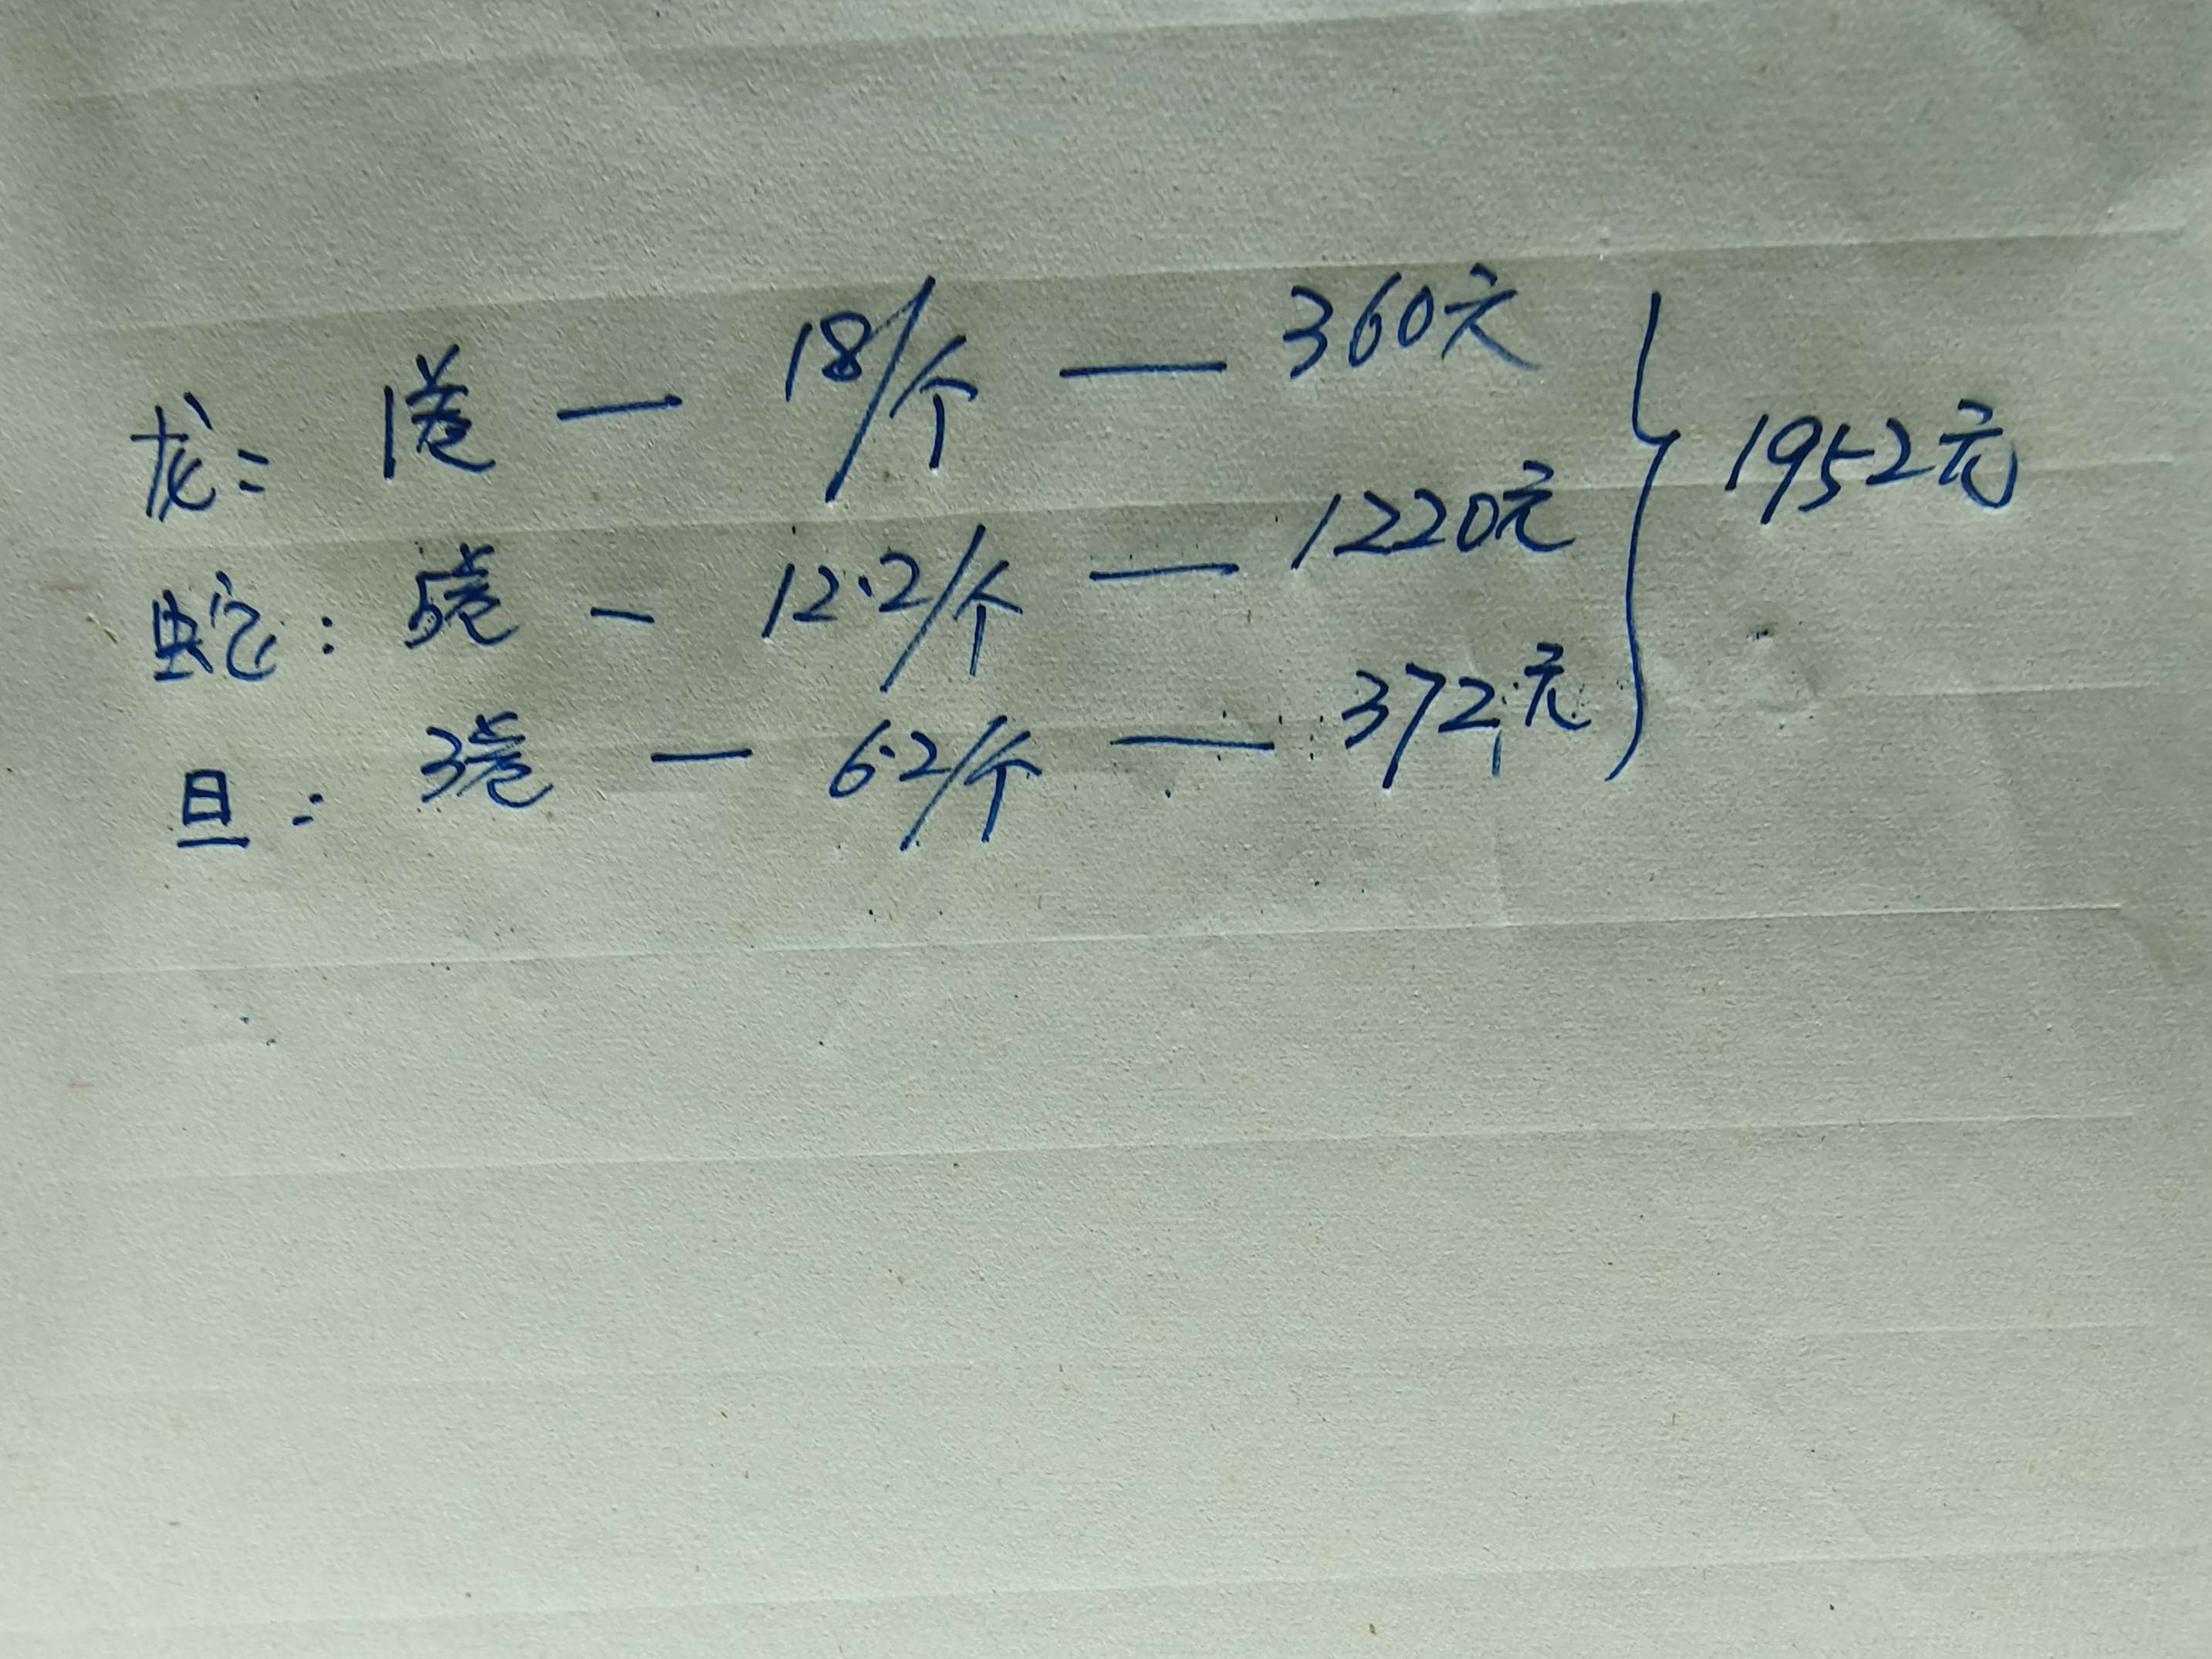 龙: 1卷 — 18/个 — 360元
蛇: 5卷 — 12.2/个 — 1220元
旦: 3卷 — 6.2/个 — 372元
1952元